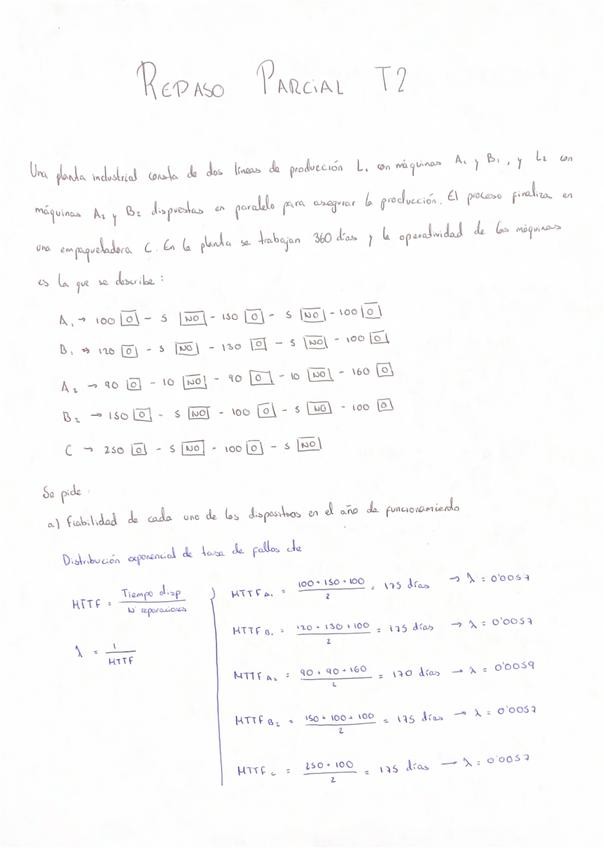 REPASO PARCIAL T2
Una planta industrial consta de dos líneas de producción L₁ con máquinas A₁ y B₁, y L₂ con
máquinas A₂ y B₂ dispuestas en paralelo para asegurar la producción. El proceso finaliza en
una empaquetadora C. En la planta se trabajan 360 días y la operatividad de las máquinas
es la que se describe:
A₁ → 100 [O] - 5 [NO] - 150 [O] - 5 [NO] - 100 [O]
B₁ → 120 [O] - 5 [NO] - 130 [O] - 5 [NO] - 100 [O]
A₂ → 90 [O] - 10 [NO] - 90 [O] - 10 [NO] - 160 [O]
B₂ → 150 [O] - 5 [NO] - 100 [O] - 5 [NO] - 100 [O]
C → 250 [O] - 5 [NO] - 100 [O] - 5 [NO]
Se pide:
a) Fiabilidad de cada uno de los dispositivos en el año de funcionamiento
Distribución exponencial de tasa de fallos cte
MTTF = Tiempo disp / Nº reparaciones
λ = 1 / MTTF
MTTF A₁ = 100 + 150 + 100 / 2 = 175 días → λ = 0'0057
MTTF B₁ = 120 + 130 + 100 / 2 = 175 días → λ = 0'0057
MTTF A₂ = 90 + 90 + 160 / 2 = 170 días → λ = 0'0059
MTTF B₂ = 150 + 100 + 100 / 2 = 175 días → λ = 0'0057
MTTF C = 250 + 100 / 2 = 175 días → λ = 0'0057